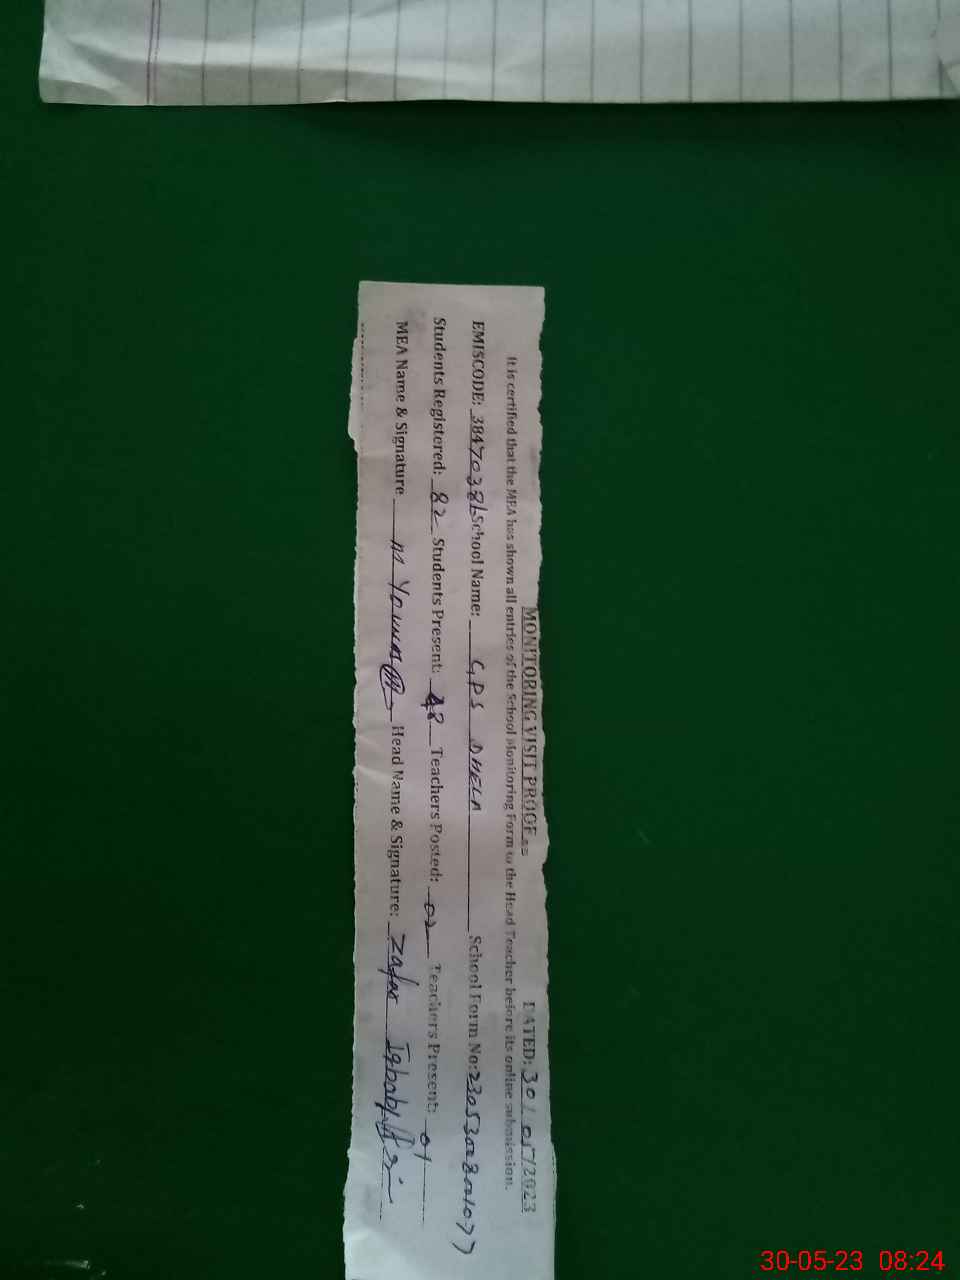 MONITORING VISIT PROOF DATED: 30/05/2023
It is certified that the MEA has shown all entries of the School Monitoring Form to the Head Teacher before its online submission.
EMISCODE: School Name: GPS DHELA School Form No:
Students Registered: 82 Students Present: 48 Teachers Posted: 02 Teachers Present: 01
MEA Name & Signature Head Name & Signature: Zafar Iqbal
30-05-23 08:24